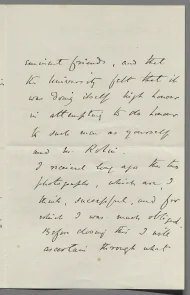 eminent friends, and that
the University felt that it
was doing itself high honor
in attempting to do honor
to such men as yourself
and Mr.
I received long ago the two
photographs, which are, I
think, successful, and for
which I was much obliged.
Before closing this I will
ascertain through what